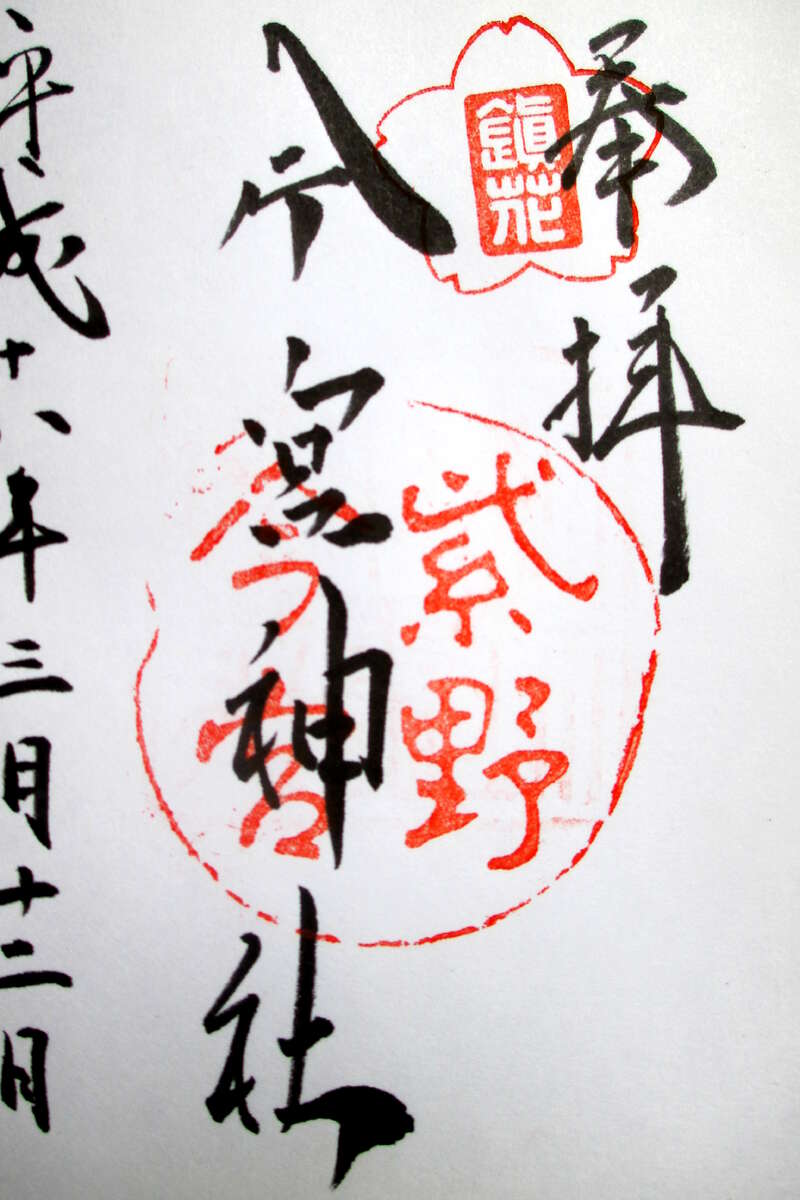 奉拝
鎮花
紫野
今宮
今宮神社
平成十八年三月十二日